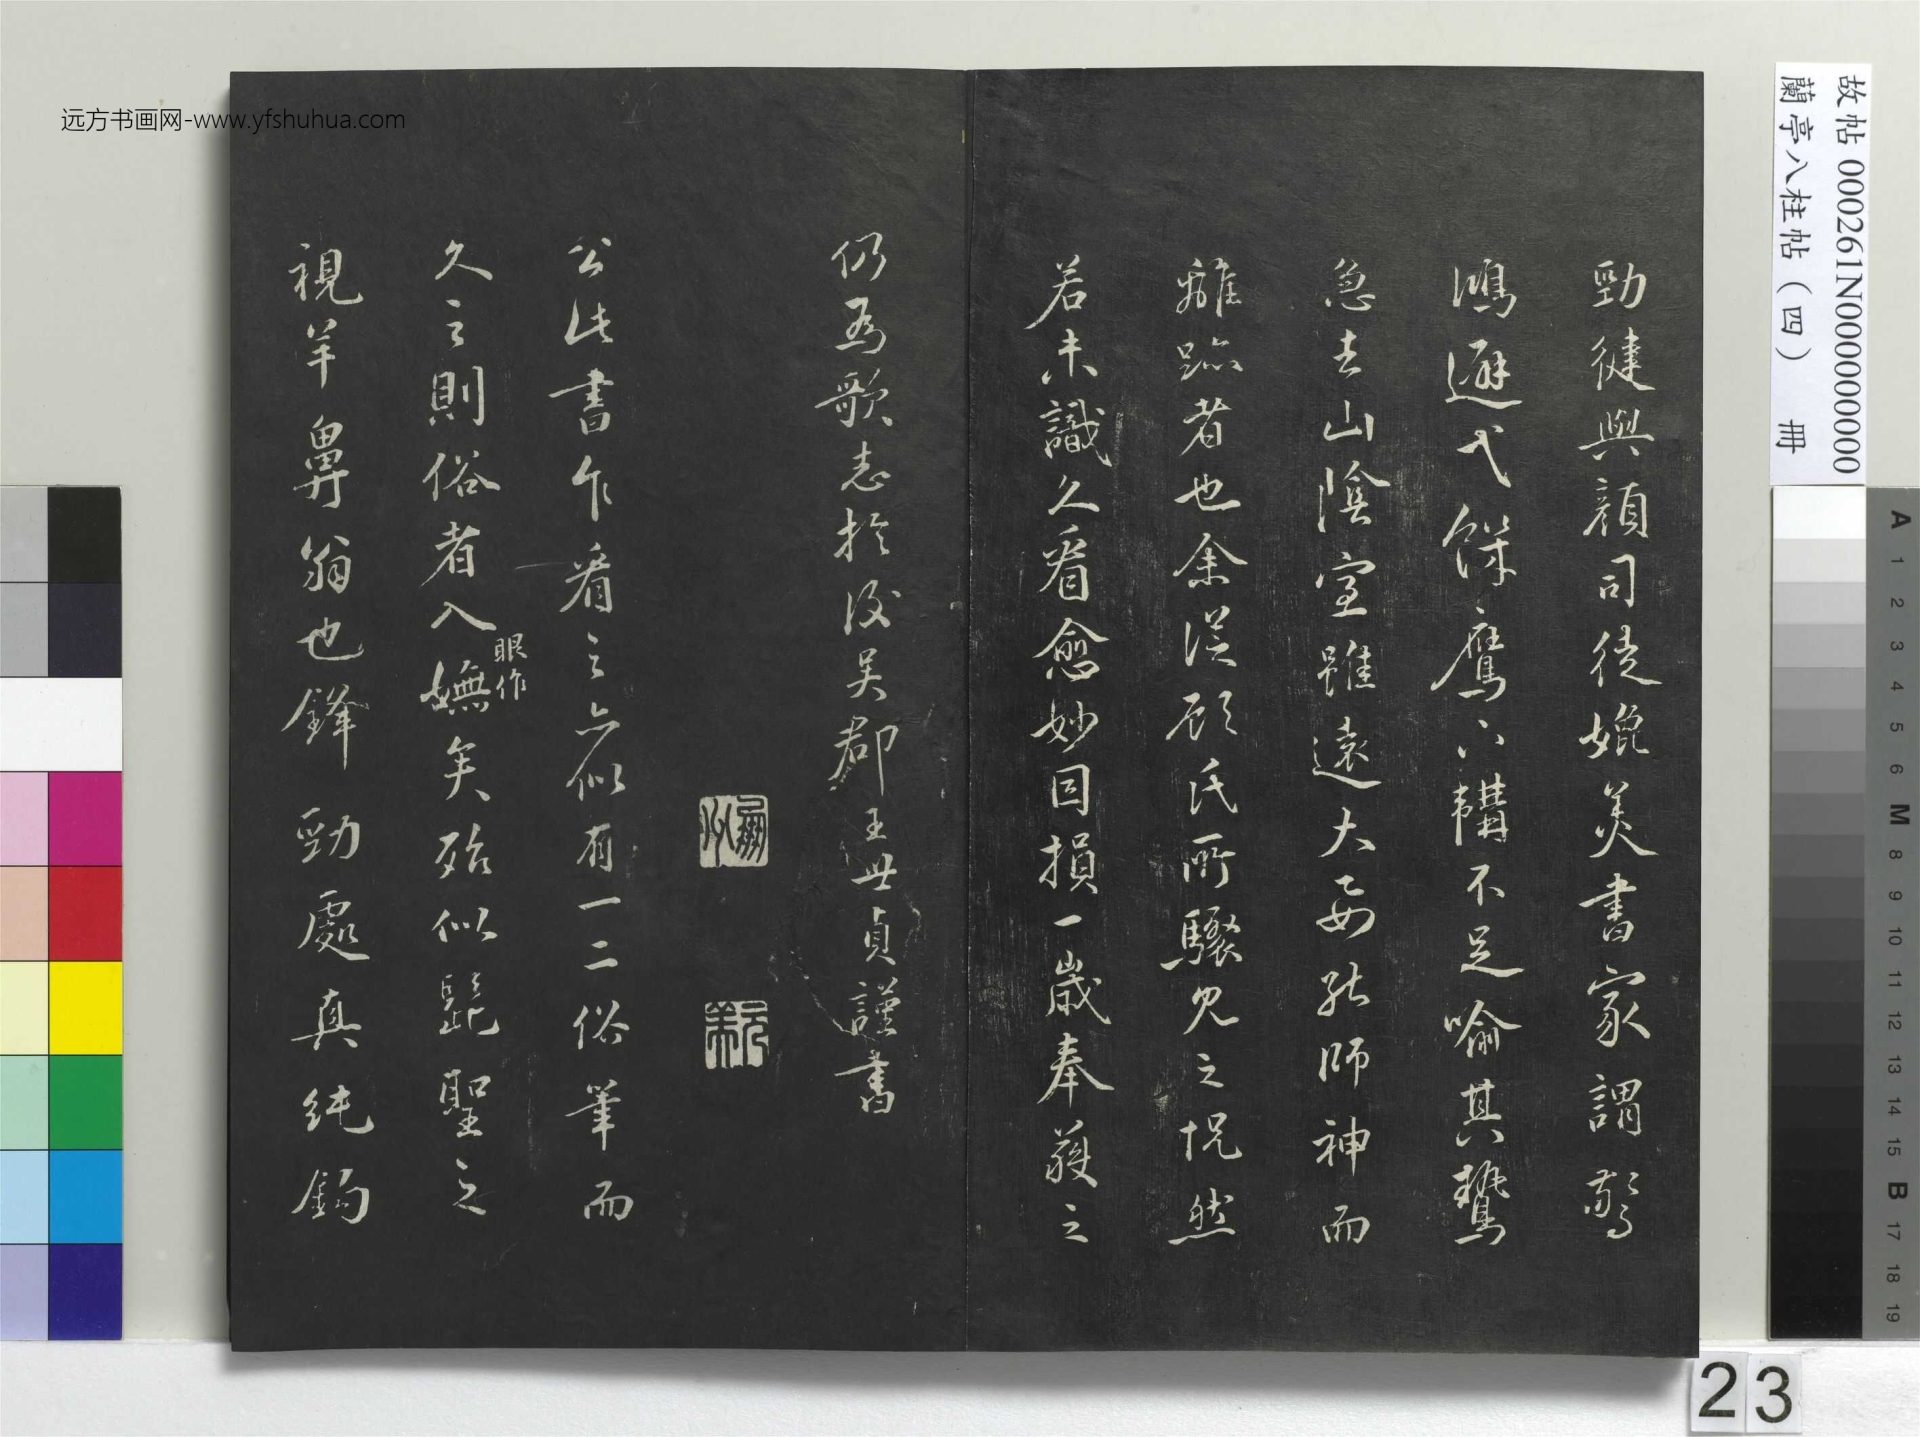 故帖 000261N000000000
蘭亭八柱帖（四） 冊
远方书画网-www.yfshuhua.com
勁健與顔司徒媲美書家謂驚
鴻避弋饑鷹下韝不足喻其鷙
急去山陰室雖遠大要能師神而
離跡者也余従顧氏所驟見之怳然
若未識久看愈妙因損一歲奉獲之
仍爲歌志於後吴郡王世貞謹書
公此書乍看之亦似有一二俗筆而
久之則俗者入眼作嫵矣殆似髭聖之
視羊鼻翁也鋒勁處真純鈎
A 1 2 3 4 5 6 M 8 9 10 11 12 13 14 15 B 17 18 19
23